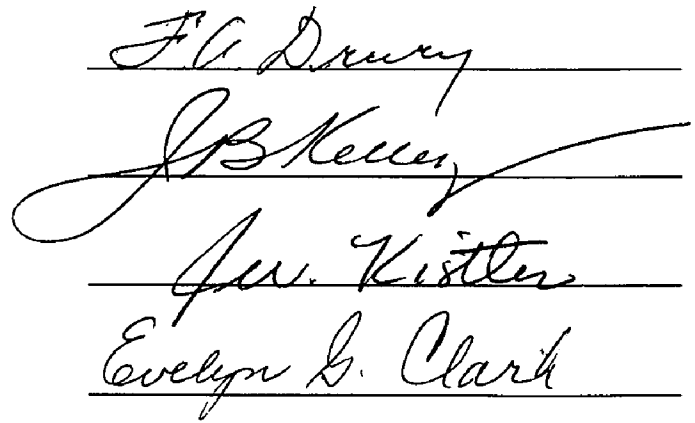 F. A. Drury
J B Kelley
J. W. Kistler
Evelyn G. Clark